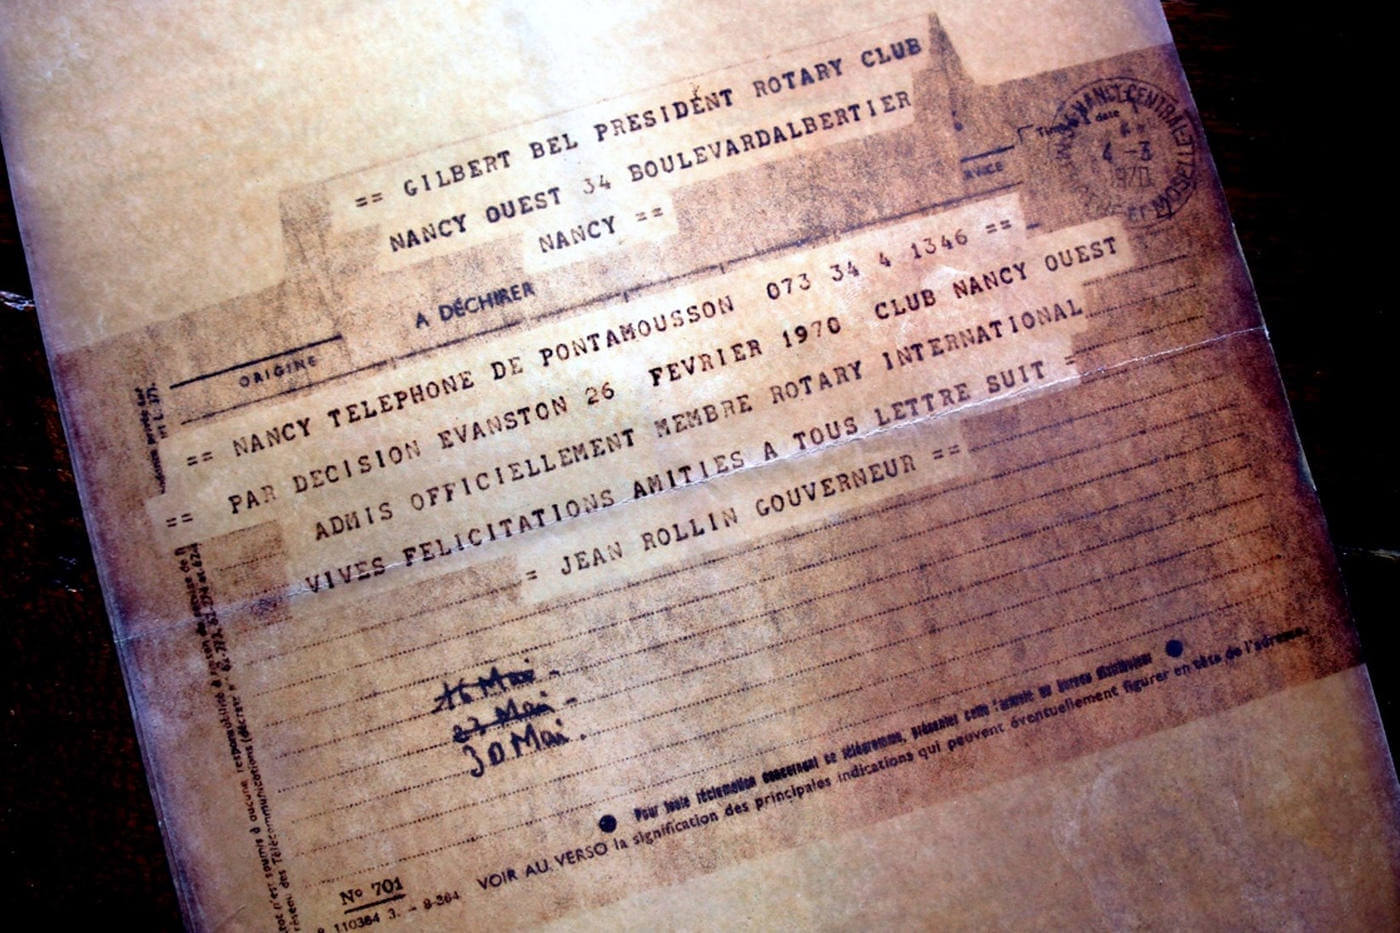 == GILBERT BEL PRESIDENT ROTARY CLUB
NANCY OUEST 34 BOULEVARDALBERTIER
NANCY ==
NANCY-CENTRAL
date
4 - 3
1970
MOSELLE
ET
A DÉCHIRER
ORIGINE
== NANCY TELEPHONE DE PONTAMOUSSON 073 34 4 1346 ==
== PAR DECISION EVANSTON 26 FEVRIER 1970 CLUB NANCY OUEST
ADMIS OFFICIELLEMENT MEMBRE ROTARY INTERNATIONAL
VIVES FELICITATIONS AMITIES A TOUS LETTRE SUIT =
= JEAN ROLLIN GOUVERNEUR ==
16 Mai -
23 Mai -
30 Mai.
● Pour toute réclamation concernant ce télégramme, présenter cette formule au bureau distributeur ●
VOIR AU VERSO la signification des principales indications qui peuvent éventuellement figurer en tête de l'adresse.
N° 701
110384 3. - 8-264
n'est soumis à aucune responsabilité à raison du service de
des Télécommunications